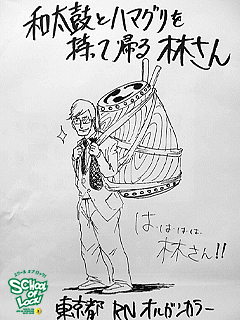 和太鼓とハマグリを
持って帰る 林さん
は…は…は…は…
林さん!!
SCHOOL OF LOCK!
東京都 RN オルガンカラー